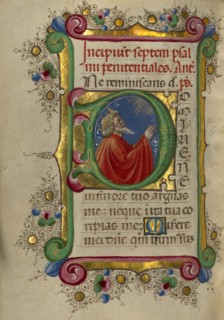 Incipiut septem psal
mi penitentiales. Ane.
Ne reminiscaris d. ps.
DOMINE NE
in furore tuo arguas
me: neque in ira tua co
rripias me. Misere
re mei domine qm infirmus